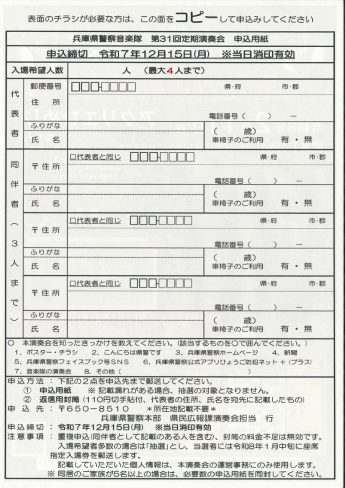 表面のチラシが必要な方は、この面をコピーして申込みしてください
兵庫県警察音楽隊 第31回定期演奏会 申込用紙
申込締切 令和7年12月15日(月) ※当日消印有効
入場希望人数 人 (最大4人まで)
代表者
郵便番号 □□□-□□□□ 県・府 市・郡
住所
電話番号( ) －
ふりがな ( 歳)
氏名 車椅子のご利用 有・無
同伴者(3人まで)
〒住所 □代表者と同じ □□□-□□□□ 県・府 市・郡
電話番号( ) －
ふりがな ( 歳)
氏名 車椅子のご利用 有・無
〒住所 □代表者と同じ □□□-□□□□ 県・府 市・郡
電話番号( ) －
ふりがな ( 歳)
氏名 車椅子のご利用 有・無
〒住所 □代表者と同じ □□□-□□□□ 県・府 市・郡
電話番号( ) －
ふりがな ( 歳)
氏名 車椅子のご利用 有・無
○ 本演奏会を知ったきっかけを教えてください。(該当するものを○で囲んでください。)
1、ポスター・チラシ 2、こんにちは県警です 3、兵庫県警察ホームページ 4、新聞
5、兵庫県警察フェイスブック等SNS 6、兵庫県警察公式アプリひょうご防犯ネット+(プラス)
7、音楽隊の演奏会 8、その他( )
申込方法：下記の2点を申込先まで郵送してください。
① 申込用紙 ※記載漏れがある場合、抽選の対象となりません。
② 返信用封筒(110円切手貼付、代表者の住所、氏名を宛先に記載したもの)
申込先：〒650-8510 *所在地記載不要*
兵庫県警察本部 県民広報課演奏会担当 行
申込締切：令和7年12月15日(月) ※当日消印有効
注意事項：重複申込(同伴者として記載のある人を含む)、封筒の料金不足は無効です。
入場希望者多数の場合は「抽選」とし、当選者には令和8年1月中旬に座席
指定入場券を郵送します。
記載していただいた個人情報は、本演奏会の運営事務にのみ使用します。
※ 同居のご家族が5名以上の場合は、必要数の申込用紙を同封してください。